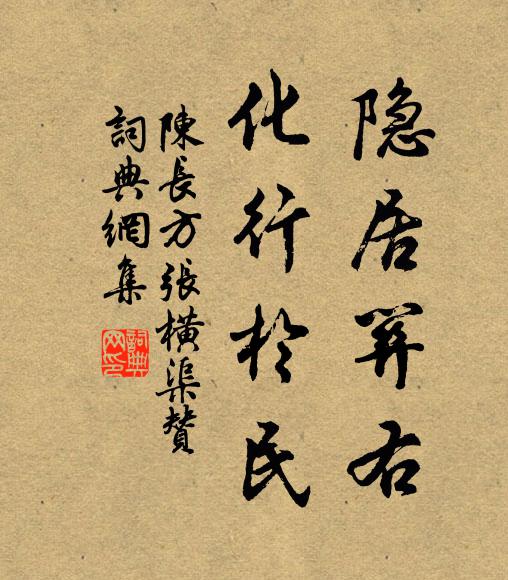 隐居關右
化行於民
陳長方張橫渠贊
詞典網集
詞典网印